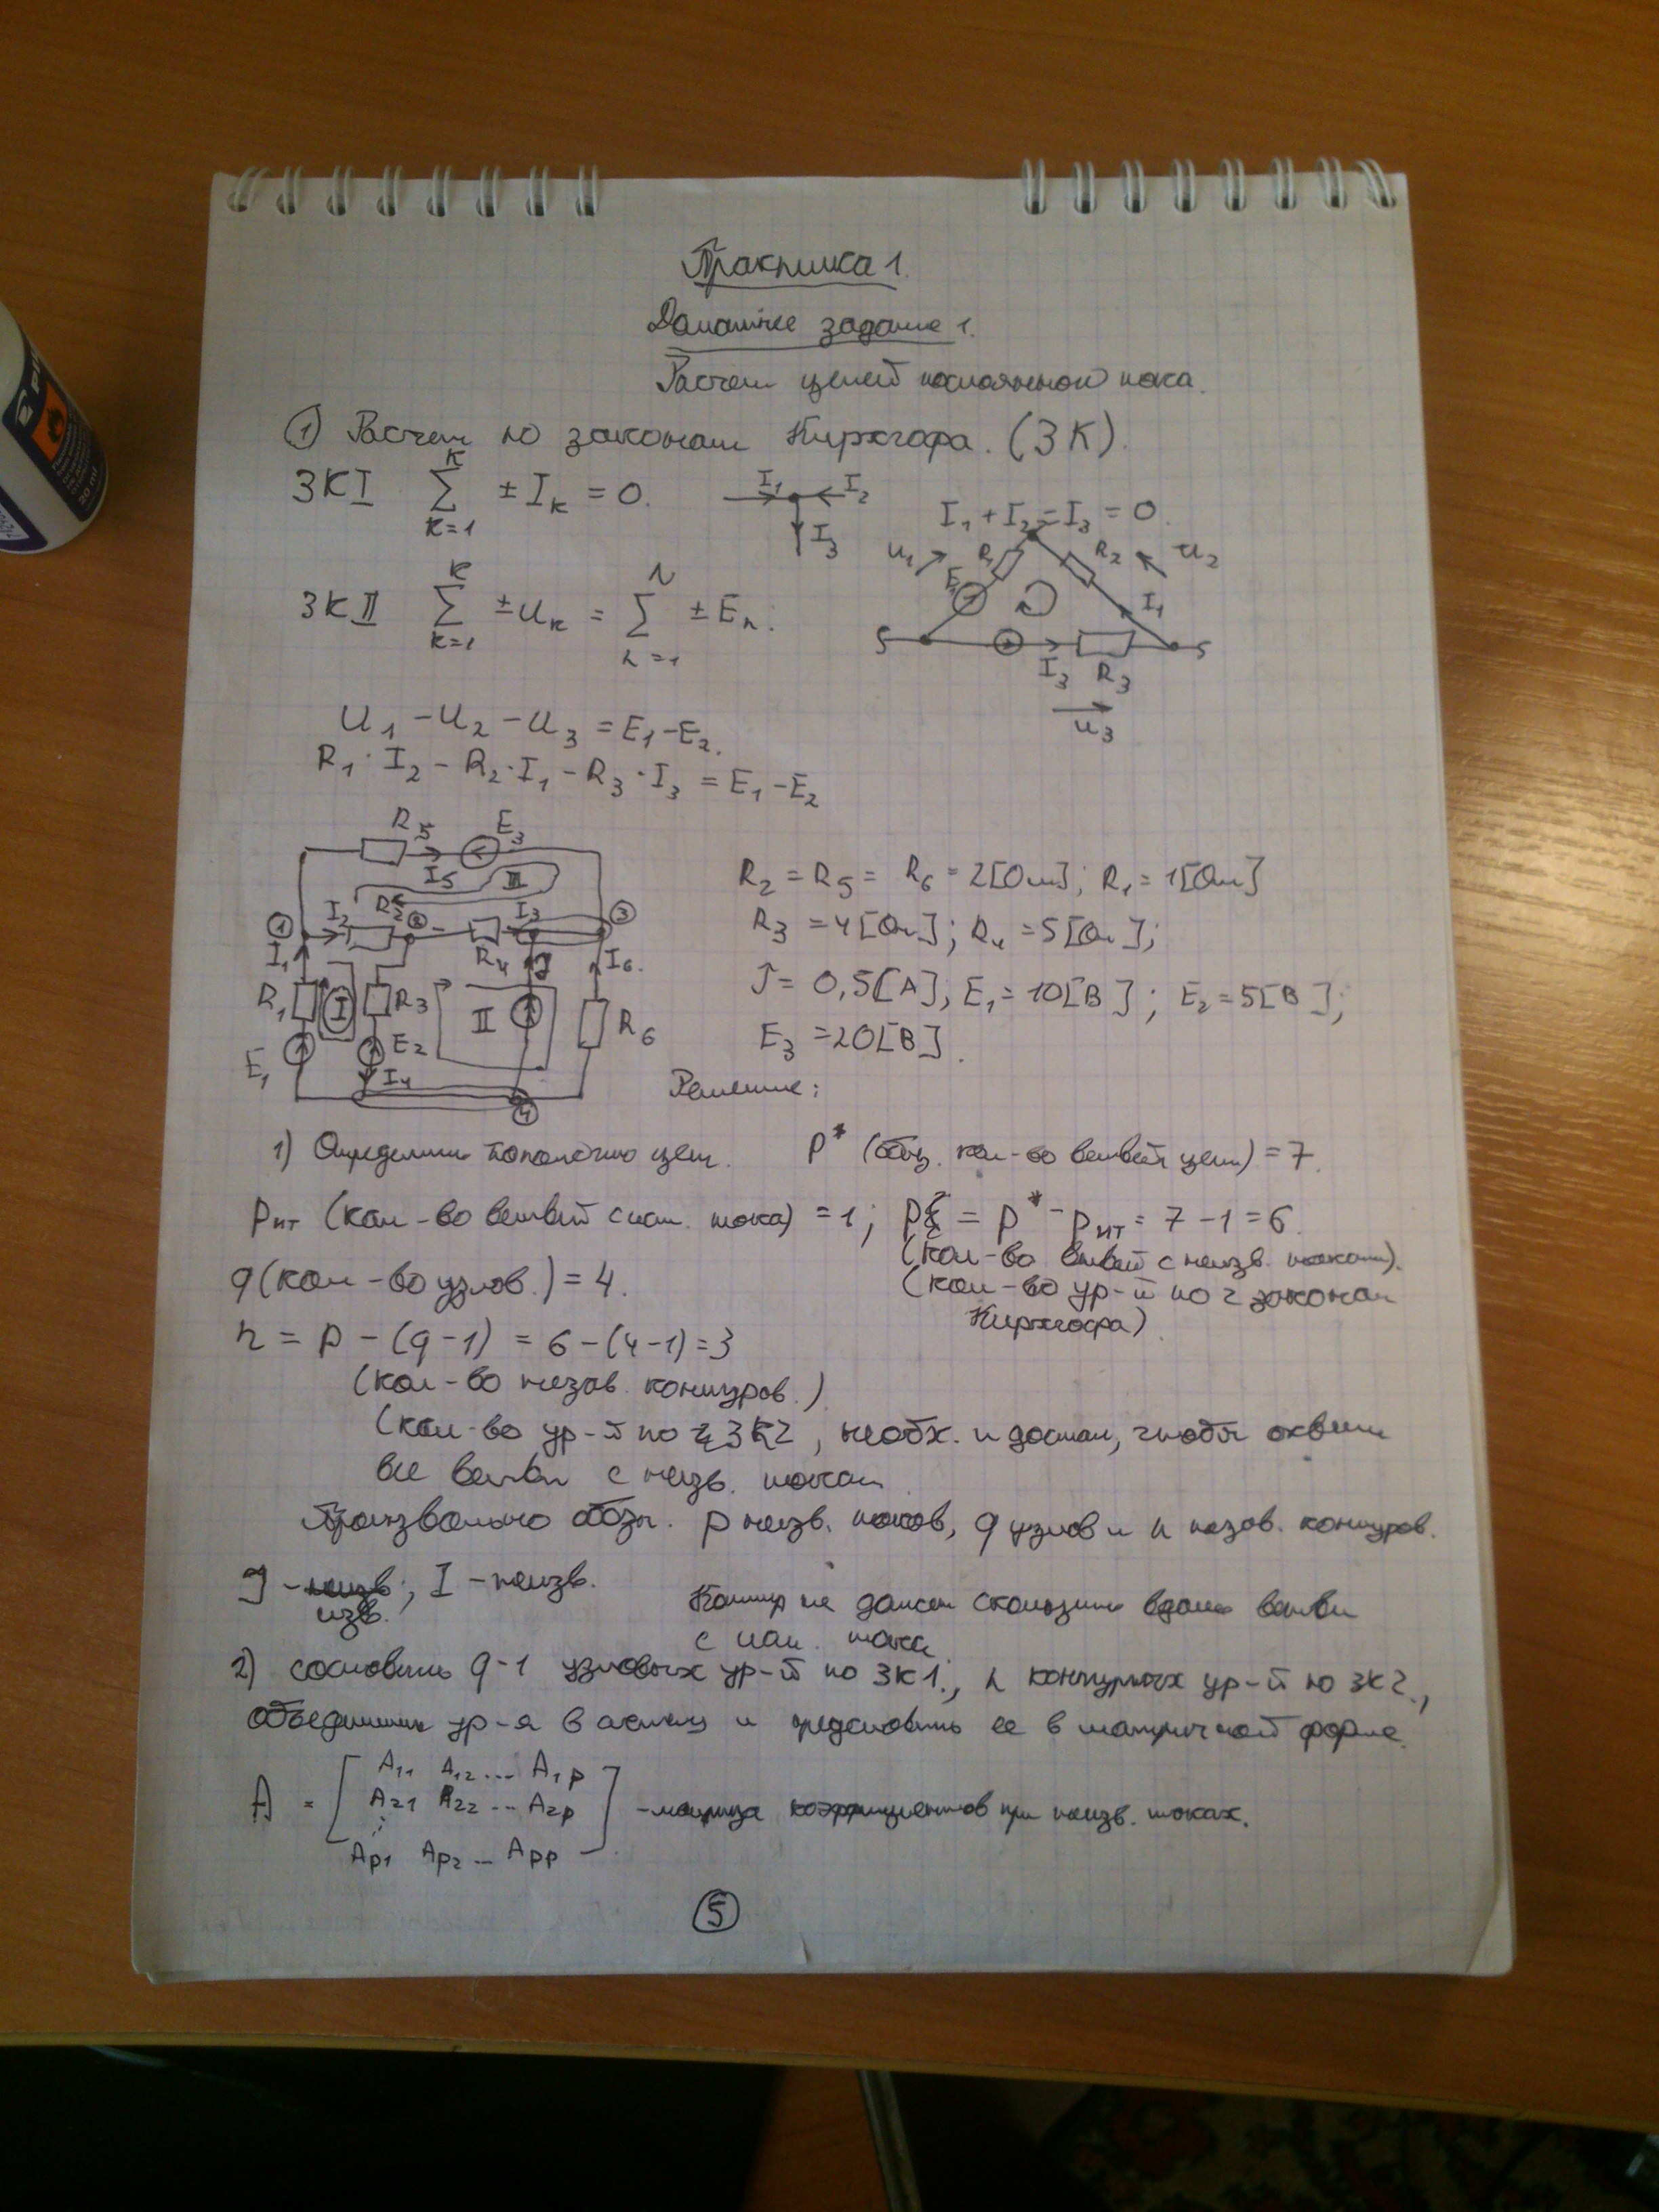 Практика 1.
Домашнее задание 1.
Расчет цепей постоянного тока.
① Расчет по законам Кирхгофа. (ЗК).
ЗКI K ∑ k=1 ± I_k = 0. I_1 I_2 I_3 I_1 + I_2 - I_3 = 0.
ЗКII K ∑ k=1 ± U_k = N ∑ n=1 ± E_n.
U_1 R_1 E_1 R_2 U_2 I_1 I_3 R_3 U_3
U_1 - U_2 - U_3 = E_1 - E_2.
R_1 · I_2 - R_2 · I_1 - R_3 · I_3 = E_1 - E_2
R_5 E_3
I_5 III
① I_2 R_2 ② I_3 ③
I_1 R_4 J I_6.
R_1 I R_3 II R_6
E_1 E_2
I_4 ④
R_2 = R_5 = R_6 = 2[Ом]; R_1 = 1[Ом]
R_3 = 4[Ом]; R_4 = 5[Ом];
J = 0,5[А]; E_1 = 10[В]; E_2 = 5[В];
E_3 = 20[В].
Решение:
1) Определим топологию цепи. p* (общ. кол-во ветвей цепи) = 7.
p_ИТ (кол-во ветвей с ист. тока) = 1; p = p* - p_ИТ = 7 - 1 = 6.
(кол-во ветвей с неизв. токами).
(кол-во ур-й по 2 законам
Кирхгофа).
q (кол-во узлов.) = 4.
n = p - (q - 1) = 6 - (4 - 1) = 3
(кол-во незав. контуров.)
(кол-во ур-й по ЗК2, необх. и достат, чтобы охват.
все ветви с неизв. токам.
Произвольно обозн. p неизв. токов, q узлов и n незав. контуров.
J - изв.; I - неизв.
Контур не должен скользить вдоль ветви
с ист. тока.
2) составить q-1 узловых ур-й по ЗК1., n контурных ур-й по ЗК2.,
объединить ур-я в систему и представить ее в матричной форме.
A = [ A_11 A_12 ... A_1p
A_21 A_22 ... A_2p
⋮
A_p1 A_p2 ... A_pp ] - матрица коэффициентов при неизв. токах.
⑤
20 ml